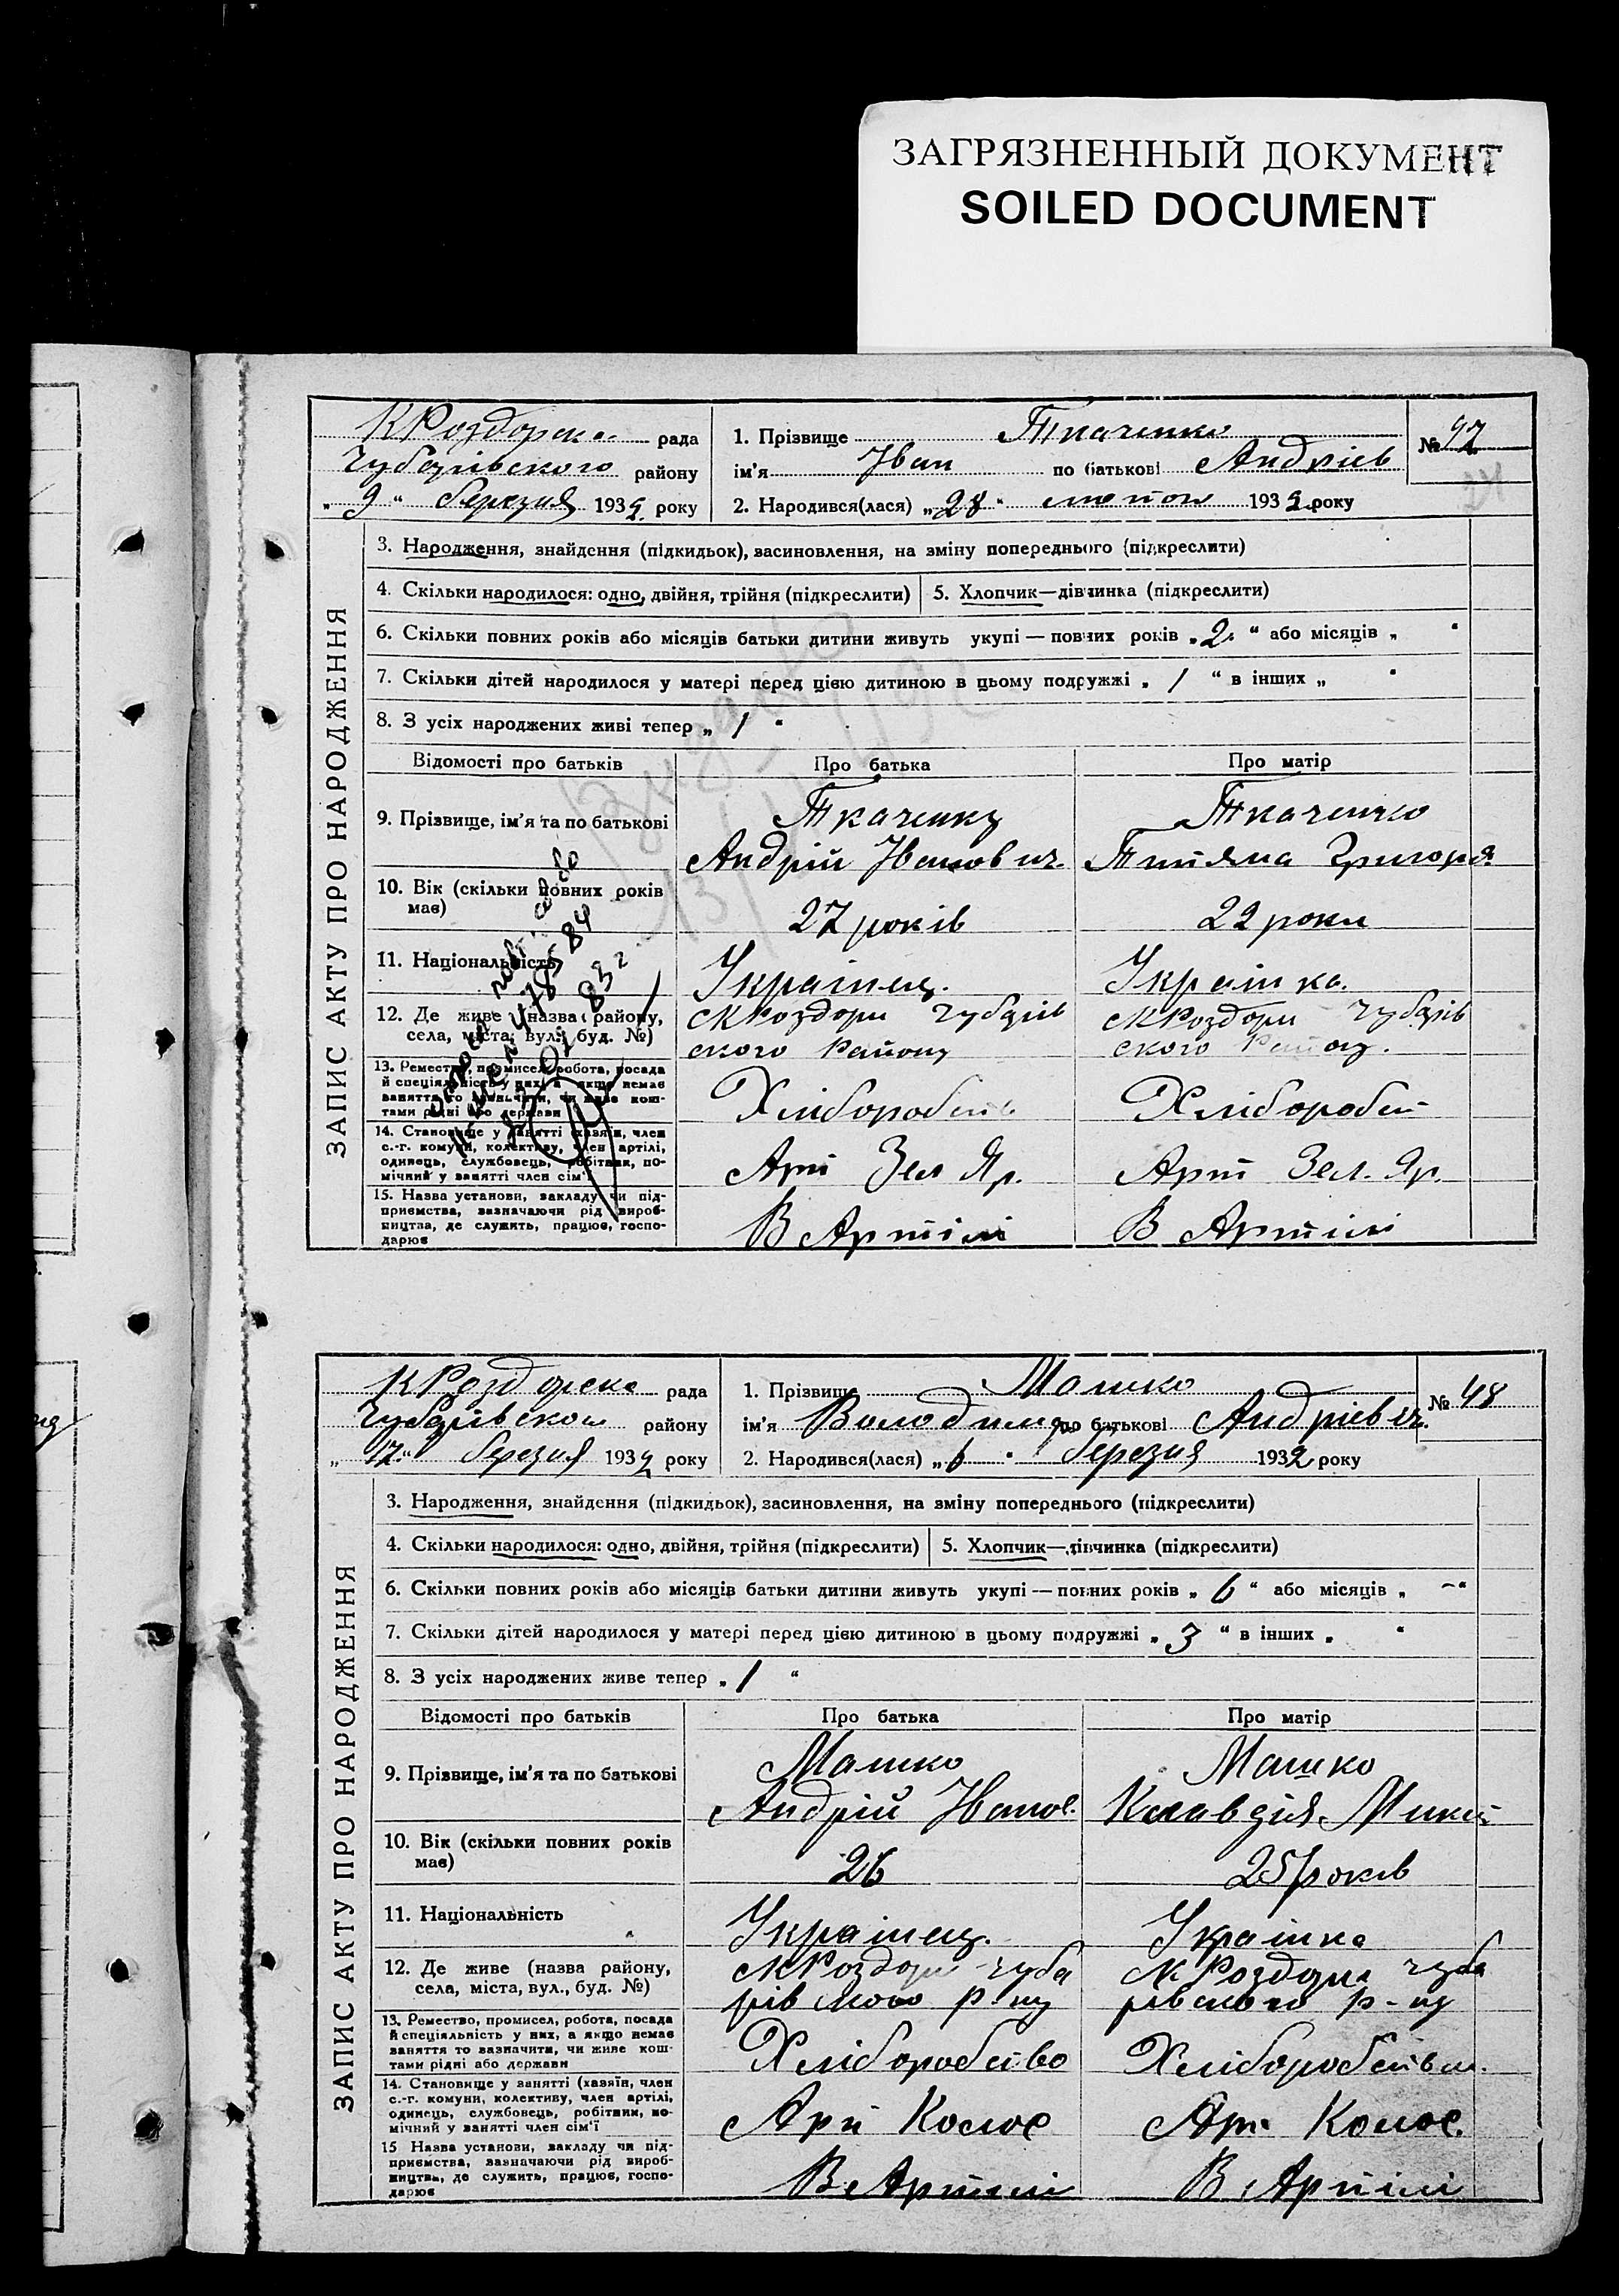 ЗАГРЯЗНЕННЫЙ ДОКУМЕНТ
SOILED DOCUMENT
ЗАПИС АКТУ ПРО НАРОДЖЕННЯ
КРоздорска рада
Чубарівського району
„ 9 “ березня 1932 року
1. Прізвище Ткаченко
ім'я Іван по батькові Андріїв
2. Народився(лася) „28“ лютого 1932 року
№ 47
24
3. Народження, знайдення (підкидьок), засиновлення, на зміну попереднього (підкреслити)
4. Скільки народилося: одно, двійня, трійня (підкреслити) 5. Хлопчик—дівчинка (підкреслити)
6. Скільки повних років або місяців батьки дитини живуть укупі — повних років „2“ або місяців „ “
7. Скільки дітей народилося у матері перед цією дитиною в цьому подружжі „ 1 “ в інших „ “
8. З усіх народжених живі тепер „ 1 “
Відомості про батьків Про батька Про матір
9. Прізвище, ім'я та по батькові
Ткаченко Ткаченко
Андрій Іванович. Титяна Григорів.
10. Вік (скільки повних років має)
27 років 22 роки
11. Національність
Українец. Українка.
12. Де живе (назва району, села, міста, вул. буд. №)
сКРоздори Чубарів сКРоздори Чубарів
ского Району ского Району.
13. Ремество, промисел, робота, посада
й спеціяльність у них, а якщо немає
заняття то зазначити, чи живе кош-
тами рідні або держави
Хлібороб Хлібороб
14. Становище у занятті (хазяїн, член
с.-г. комуни, колективу, член артілі,
одинець, службовець, робітник, по-
мічний у занятті член сім'ї
Арт Зел Яр. Арт Зел. Яр.
15. Назва установи, закладу чи під-
приємства, зазначаючи рід вироб-
ництва, де служить, працює, госпо-
дарює
В Артілі В Артілі
ЗАПИС АКТУ ПРО НАРОДЖЕННЯ
КРоздорска рада
Чубарівского району
„12“ березня 1932 року
1. Прізвище Машко
ім'я Володимир по батькові Андрієвич.
2. Народився(лася) „6 “ березня 1932 року
№ 48
3. Народження, знайдення (підкидьок), засиновлення, на зміну попереднього (підкреслити)
4. Скільки народилося: одно, двійня, трійня (підкреслити) 5. Хлопчик—дівчинка (підкреслити)
6. Скільки повних років або місяців батьки дитини живуть укупі — повних років „ 6 “ або місяців „ —“
7. Скільки дітей народилося у матері перед цією дитиною в цьому подружжі „ 3 “ в інших „ “
8. З усіх народжених живе тепер „ 1 “
Відомості про батьків Про батька Про матір
9. Прізвище, ім'я та по батькові
Машко Машко
Андрій Іванов. Клавдія Микит
10. Вік (скільки повних років має)
26 25 років
11. Національність
Українец. Українка
12. Де живе (назва району, села, міста, вул., буд. №)
сКРоздори Чуба сК Роздори Чуба
рівского р-ну рівского р-ну
13. Ремество, промисел, робота, посада
й спеціяльність у них, а якщо немає
заняття то зазначити, чи живе кош-
тами рідні або держави
Хліборобство Хліборобство.
14. Становище у занятті (хазяїн, член
с.-г. комуни, колективу, член артілі,
одинець, службовець, робітник, по-
мічний у занятті член сім'ї
Арт Колос Арт Колос.
15 Назва установи, закладу чи під-
приємства, зазначаючи рід вироб-
ництва, де служить, працює, госпо-
дарює
В Артілі В Артілі